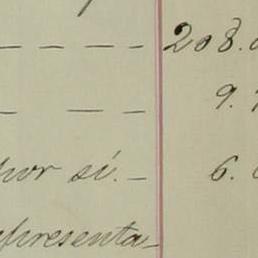 — — — — 208.
— — — 9.
por sí. — 6.
representa-